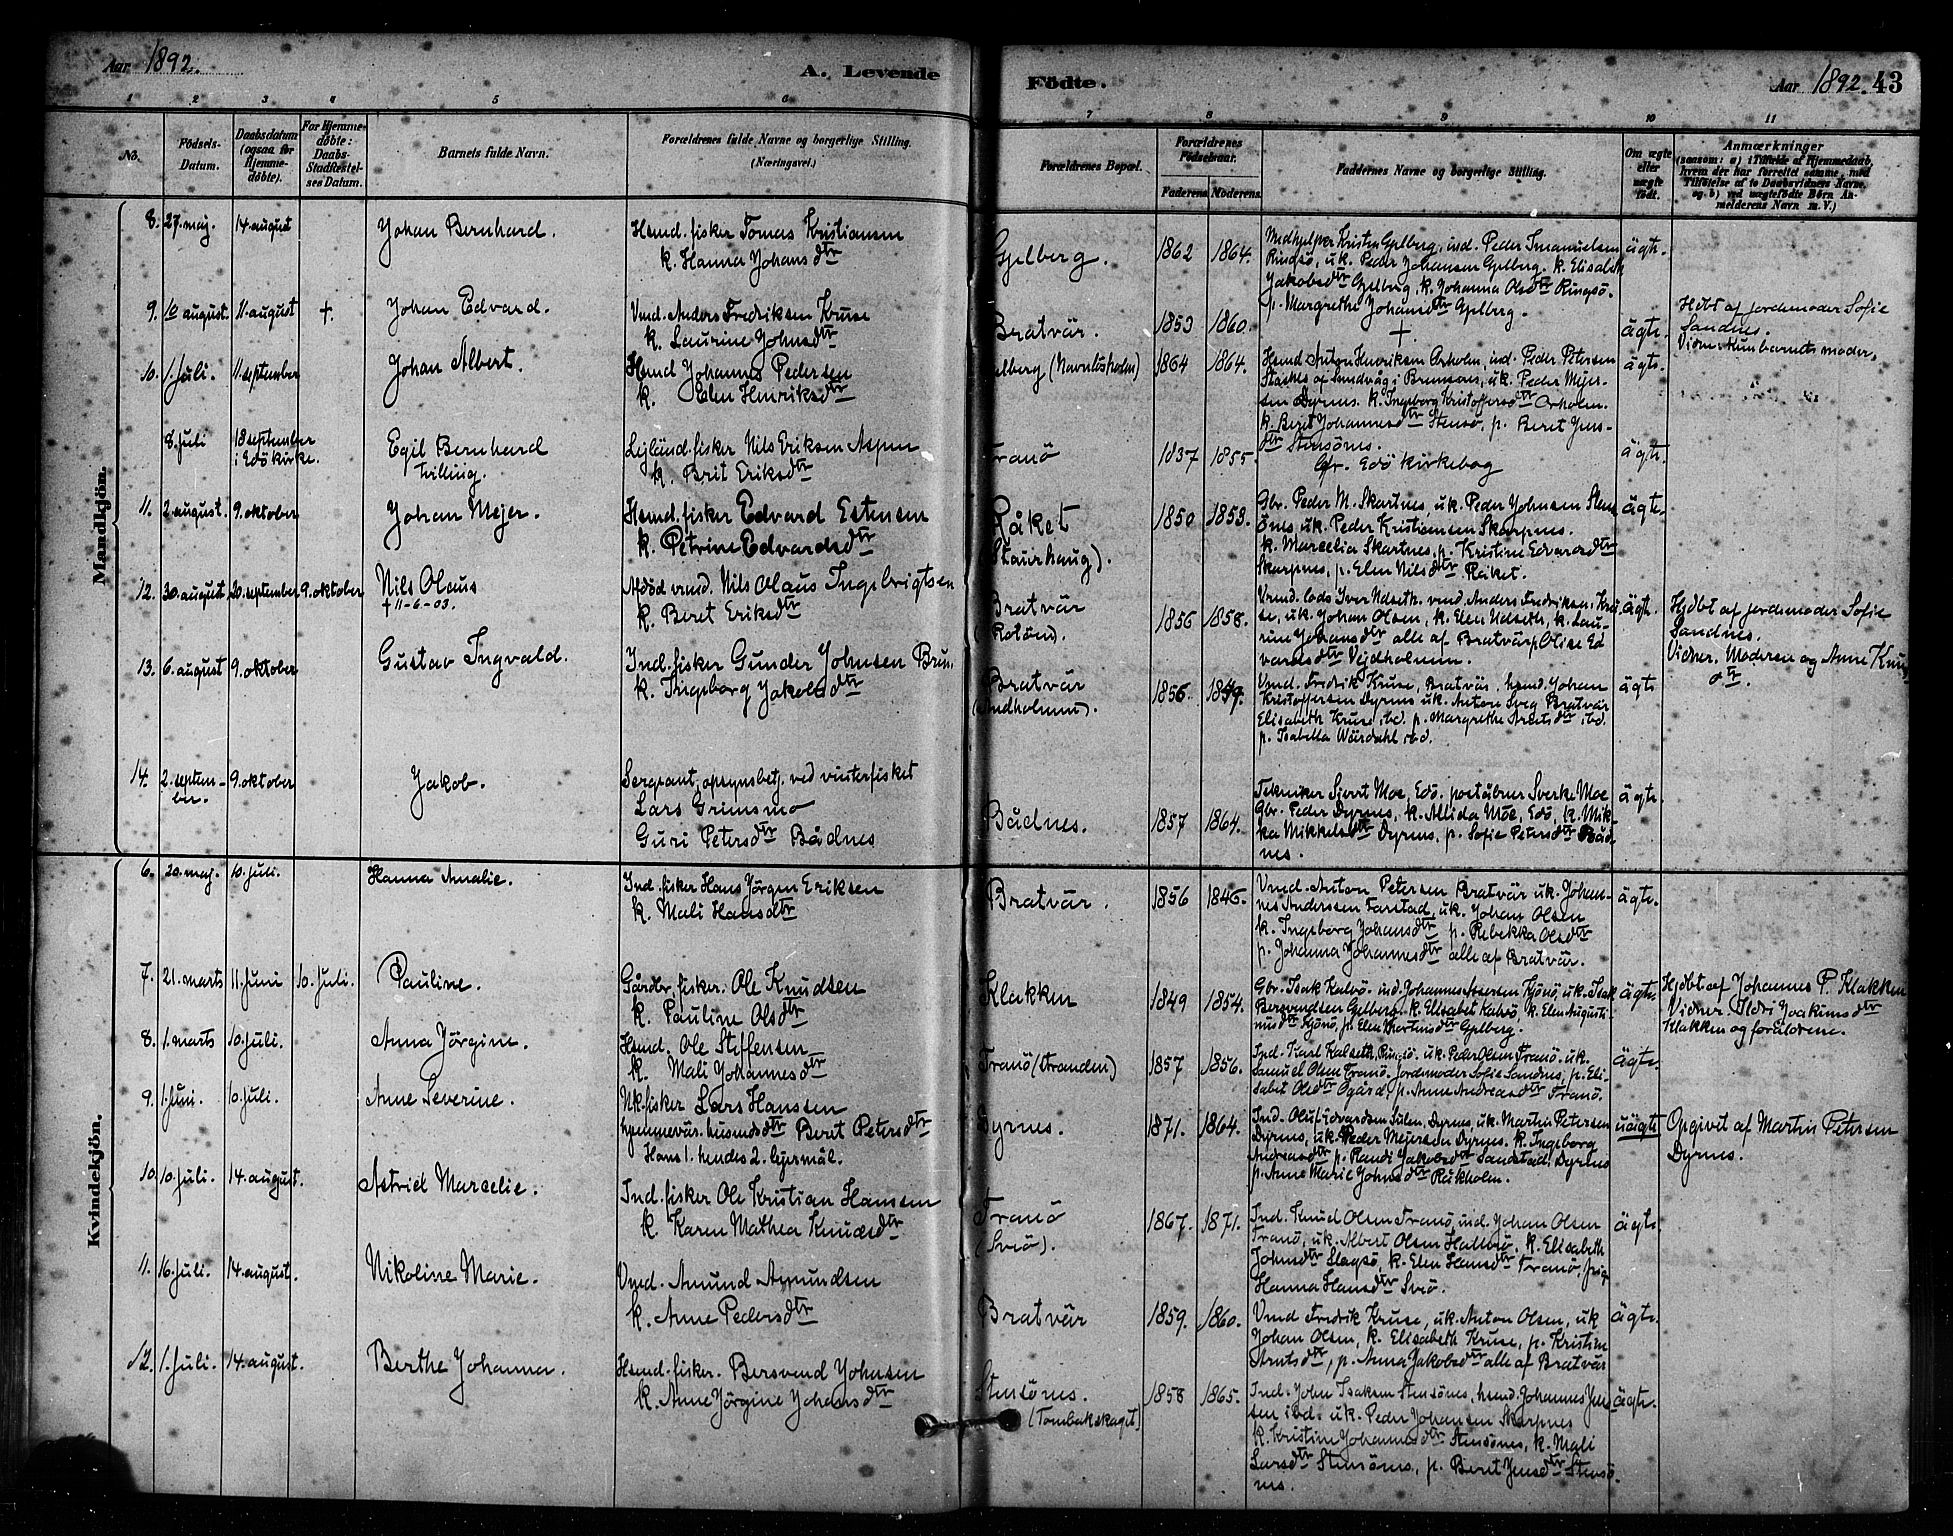 Aar 1892.
A. Levende
Födte.
Aar 1892. 43
1 2 3 4 5 6 7 8 9 10 11
No.
Födsels-Datum.
Daabsdatum (ogsaa for Hjemme-døbte).
For Hjemme-døbte: Daabs-Stadfæstelses Datum.
Barnets fulde Navn.
Forældrenes fulde Navne og borgerlige Stilling. (Næringsvei.)
Forældrenes Bopæl.
Forældrenes Födselsaar. Faderens Moderens
Faddernes Navne og borgerlige Stilling.
Om ægte eller uægte født.
Anmærkninger (saasom: a) i Tilfælde af Hjemmedaab, hvem der har forrettet samme, med Tilføielse af to Daabsvidners Navne, og b) ved uægtefødte Børn Anmelderens Navn m. V.)
Mandkjön.
8. 27. maj. 14. august
Johan Bernhard.
Hsmd. fisker Tomas Kristiansen
k. Hanna Johansdtr
Gjelberg. 1862 1864.
Medhjelper Kristen Gjelberg, ind. Peder Imanuelsen
Ringsö, uk. Peder Johansen Gjelberg. k. Elisabeth
Jakobsdtr Gjelberg, k. Johanna Olsdtr Ringsö.
p. Margrethe Johansdtr Gjelberg.
ägte.
9. 10 august. 11. august +.
Johan Edvard.
Vmd. Anders Fredriksen Kruse
k. Laurine Johnsdtr
Bratvär. 1853 1860.
+
ägte.
Hdbt af jordemoder Sofie
Sandnes.
10. 1. juli. 11. september
Johan Albert.
Hsmd Johannes Pedersen
k. Elen Henriksdtr
1864 1864.
Hsmd Anton Henriksen Orholm, ind. Peder Petersen
uk. Peder Mejer-
sen Dyrnes. k. Ingeborg Kristoffersdtr Orholm.
k. Beret Johannesdtr Stensö, p. Beret Jens-
dtr Stensönes.
ägte.
8. juli 18 september
i Edö kirke.
Egil Bernhard
tvilling.
Lejländ. fisker Nils Eriksen Aspen
k. Brit Eriksdtr
Tranö 1837 1855.
Cfr. Edö kirkebog
ägte.
11. 2. august. 9. oktober
Johan Mejer.
Hsmd. fisker Edvard Estensen
k. Petrine Edvardsdtr
Råket
(Staurhaug). 1850 1853.
Gbr. Peder M. Skartnes, uk. Peder Johnsen Stens-
önes uk. Peder Kristiansen Skarpnes.
k. Marselia Skartnes, p. Kristine Edvardsdtr
Skarpnes, p. Elen Nilsdtr Råket.
ägte.
12. 30. august 20. september 9. oktober
Nils Olaus
+ 11-6-03.
Afdöd vmd. Nils Olaus Ingebrigtsen
k. Beret Eriksdtr
Bratvär 1856 1858.
Vmd. lods Iver Udseth. vmd. Anders Fredriksen Kru-
se, uk. Johan Olsen, k. Elen Udseth, k. Lau-
rine Johansdtr alle af Bratvär p. Olise Ed
vardsdtr Vejdholmen.
ägte.
Hjdbt af jordemoder Sofie
Sandnes.
Vidner. Moderen og Anne Knuds
dtr.
13. 6. august 9. oktober
Gustav Ingvald.
Ind. fisker Gunder Johnsen Brun,
k. Ingeborg Jakobsdtr
Bratvär 1856. 1849.
Vmd. Fredrik Kruse, Bratvär, hsmd. Johan
Kristoffersen Dyrnes uk. Anton Sveg Bratvär
Elisabeth Kruse ibd. p. Margrethe Arntsdtr ibd.
p. Isabella Wärdahl ibd.
ägte
14. 2. septem-
ber. 9. oktober
Jakob.
Sergeant, opsynsbetj. ved vinterfisket
Lars Grimsmo
Guri Petersdtr Bådnes
Bådnes. 1857 1864.
Tekniker Sivert Moe, Edö. postaabner Sverke Moe
Gbr. Peder Dyrnes, k. Allida Moe, Edö, k. Mik-
ka Mikkelsdtr Dyrnes, p. Sofie Petersdtr Båd-
nes.
ägte.
Kvindekjön.
6. 20. maj. 10. juli.
Hanna Amalie.
Ind. fisker Hans Jörgen Eriksen
k. Mali Hansdtr
Bratvär. 1856 1846.
Vmd. Anton Petersen Bratvär uk. Johan-
nes Anderssen Farstad, uk. Johan Olsen
k. Ingeborg Johansdtr p. Rebekka Olsdtr
p. Johanna Johannesdtr alle af Bratvär.
ägte.
7. 21. marts 11. juni 10. juli.
Pauline.
Gårdbr. fisker. Ole Knudsen
k. Pauline Olsdtr
Klakken 1849 1854.
Gbr. Isak Kalvö. ind. Johannes Assersen Kjönö, uk. Isak
Bersvendsen Gjelberg. k. Elisabet Kalvö k. Elen Augusti-
nusdtr Kjönö, p. Elen Martinsdtr Gjelberg.
ägte.
Hjdbt af Johannes P. Klakken
Vidner Ildri Joakimsdtr
Klakken og forældrene.
8. 1. marts 10. juli.
Anna Jörgine.
Hsmd. Ole Steffensen
k. Mali Johannesdtr
Tranö (Stranden) 1857 1856.
Ind. Karl Kalseth, Ringsö. uk. Peder Olsen Tranö. uk.
Samuel Olsen Tranö. Jordemoder Sofie Sandnes, p. Eli-
sabet Olsdtr Ögård, p. Anne Andreasdtr Tranö.
ägte.
9. 1. juni. 10. juli.
Anne Severine.
Uk. fisker Lars Hanssen
hjemmevär. husmdsdtr Berit Petersdtr
Hans 1. hendes 2. lejermål.
Dyrnes. 1871. 1864.
Ind. Oluf Edvardsen Sulen, Dyrnes, uk. Martin Petersen
Dyrnes, uk. Peder Mejersen Dyrnes. k. Ingeborg
Andreasdtr p. Randi Jakobsdtr Sandstad, Dyrnes
p. Anne Marie Johnsdtr Råkholm.
uägte
Opgivet af Martin Petersen
Dyrnes.
10. 10. juli. 14. august.
Astrid Marselie.
Ind. fisker Ole Kristian Hansen
k. Karen Mathea Knudsdtr
Tranö
(Sviö). 1867. 1871.
Ind. Knud Olsen Tranö, ind. Johan Olsen
Tranö, uk. Albert Olsen Hallsö, k. Elisabeth
Johnsdtr Slagsö, k. Elen Hansdtr Tranö, pige
Hanna Hansdtr Sviö.
ägte.
11. 16. juli. 14. august.
Nikoline Marie.
Vmd. Amund Amundsen
k. Anne Pedersdtr
Bratvär 1859. 1860.
Vmd Fredrik Kruse, uk. Anton Olsen, uk
Johan Olsen, k. Elisabeth Kruse, p. Kristine
Arntsdtr, p. Anna Jakobsdtr alle af Bratvär
ägte.
12. 1. juli. 14. august.
Berthe Johanna.
Hsmd. fisker. Bersvend Johnsen
k. Anne Jörgine Johansdtr
Stensönes. 1858 1865.
Ind. John Isaksen Stensönes, hsmd. Johannes Jen-
sen ibd. uk. Peder Johansen Skarpnes
k. Kristine Johannesdtr Stensönes, k. Mali
Larsdtr Stensönes, p. Beret Jensdtr Stensö-
nes.
ägte.